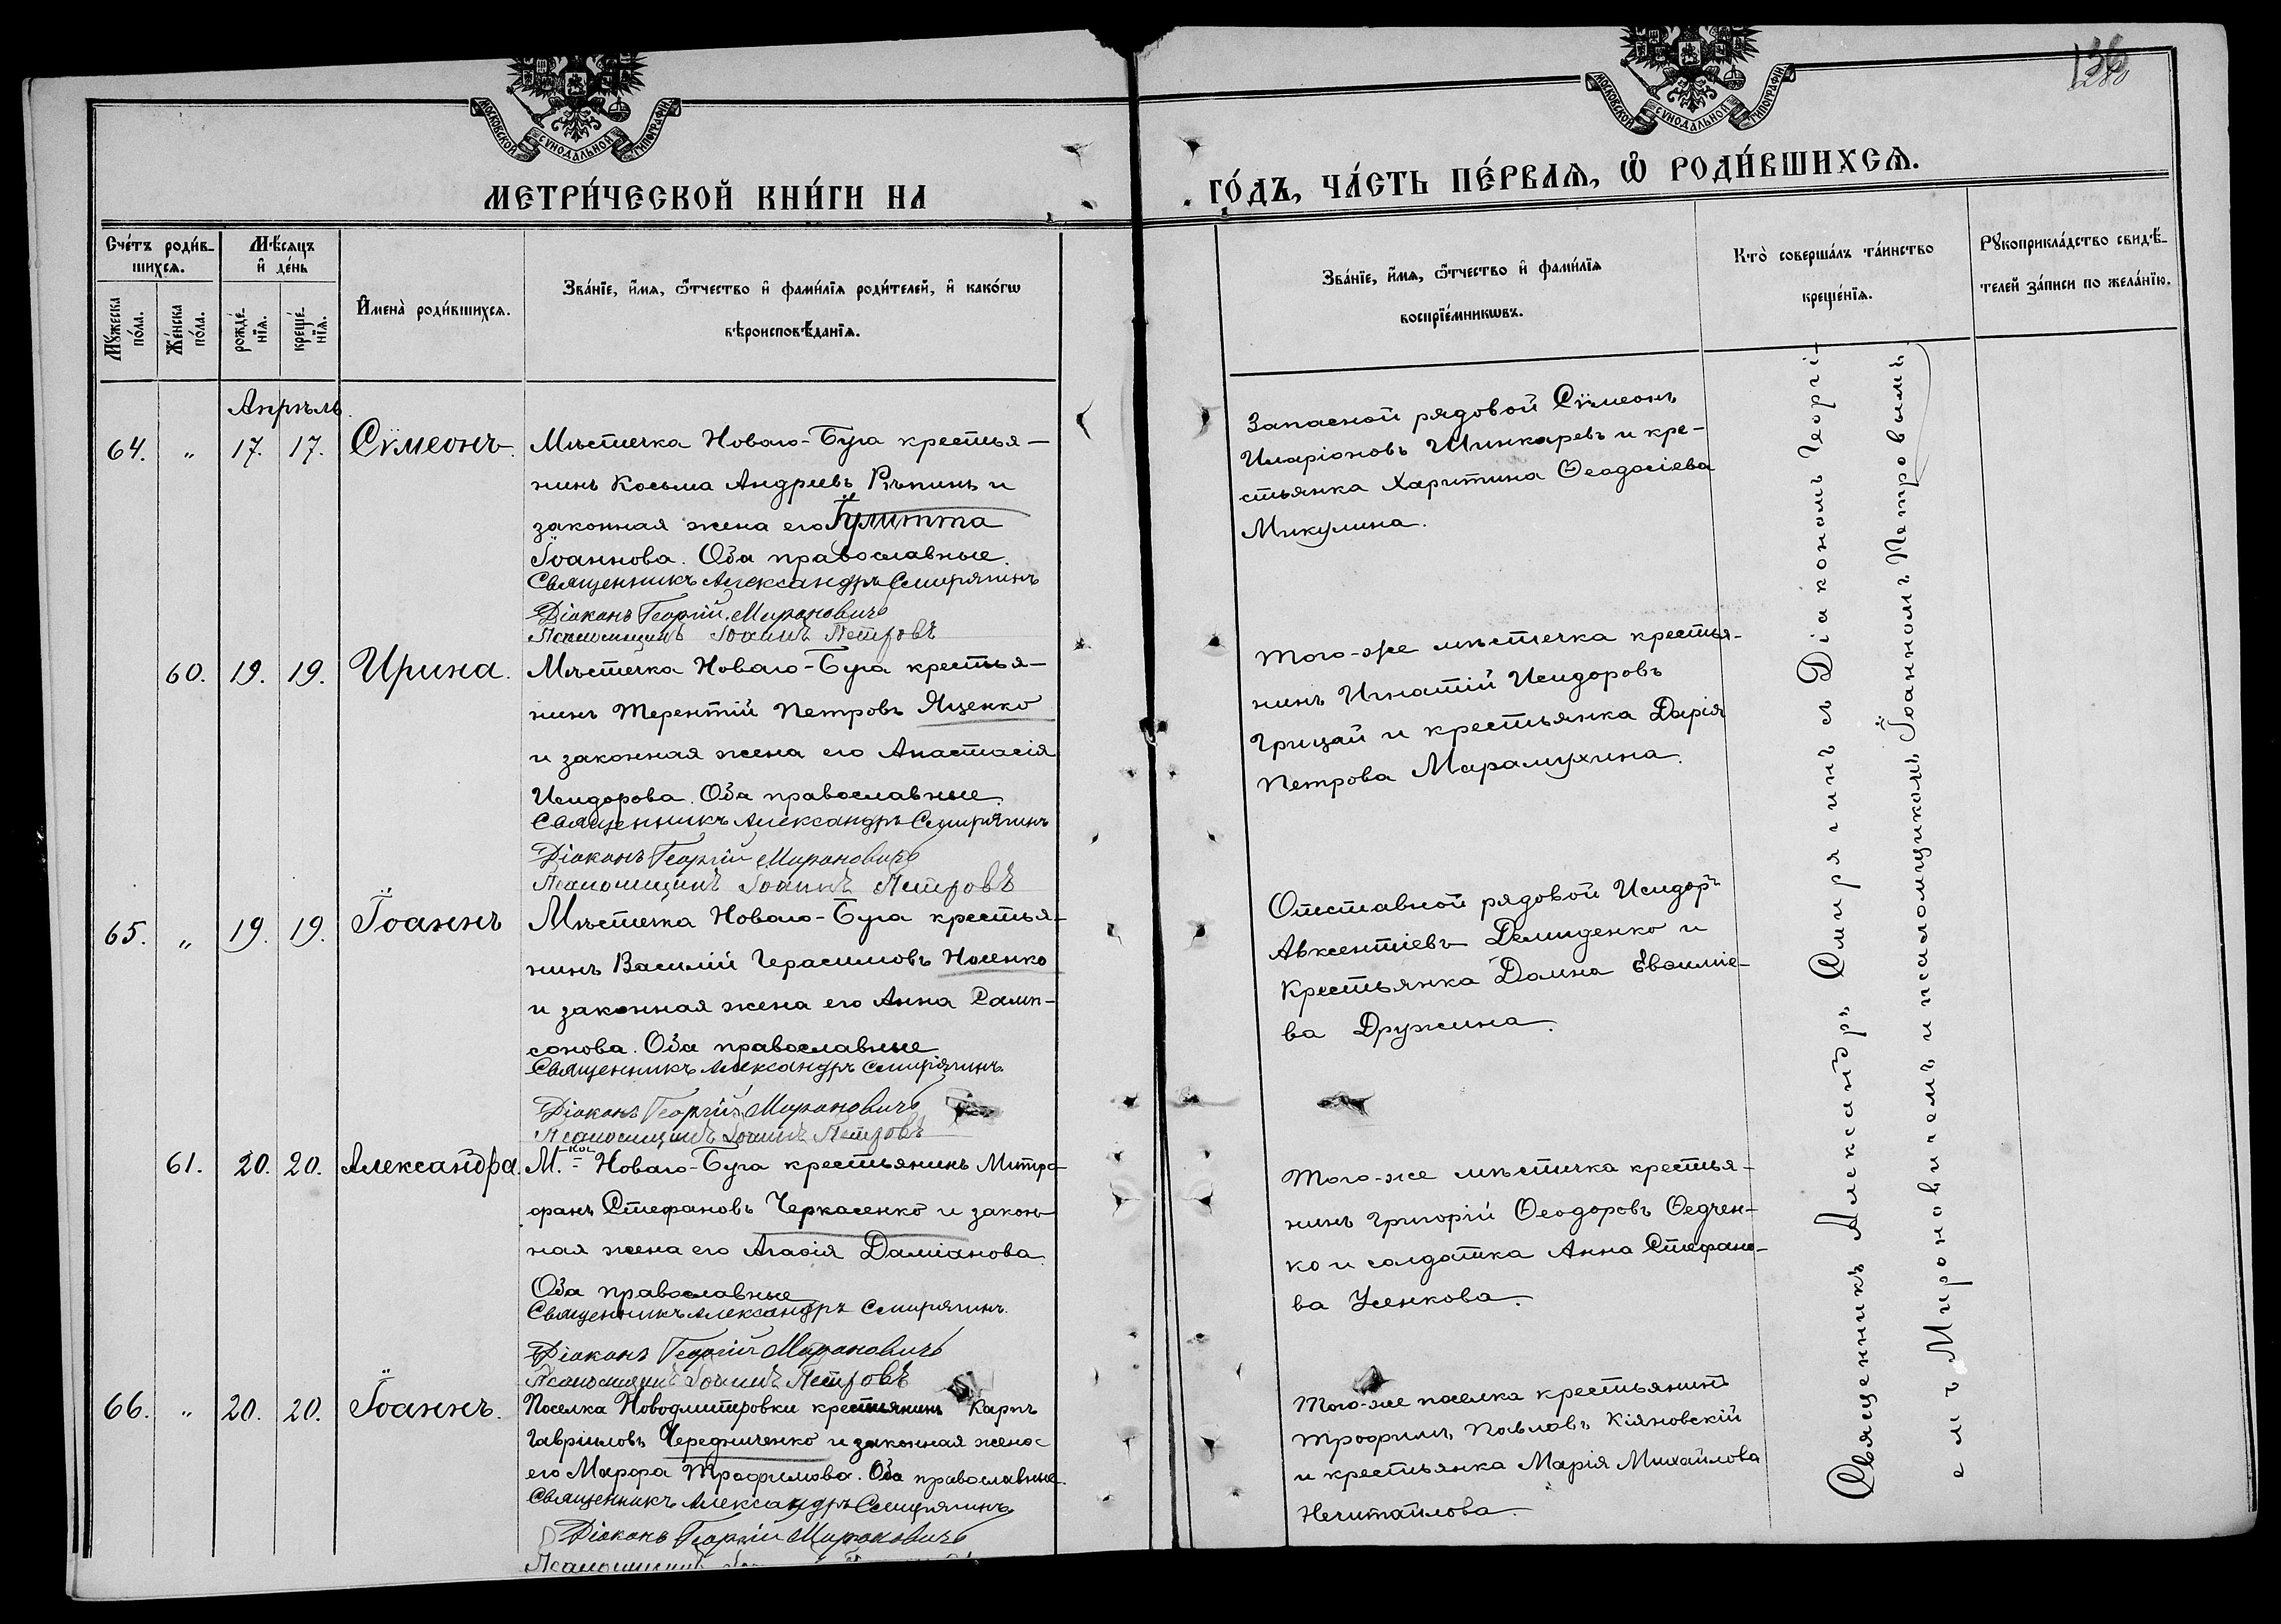 136
МОСКОВСКОЙ СѴНОДАЛЬНОЙ ТИПОГРАФІИ
МОСКОВСКОЙ СѴНОДАЛЬНОЙ ТИПОГРАФІИ
МЕТРИ́ЧЕСКОЙ КНИ́ГИ НА
ГО́ДЪ, ЧА́СТЬ ПЕ́РВАѦ, Ѽ РОДИ́ВШИХСѦ.
Сче́тъ роди́в-
шихсѧ.
Мꙋ́жеска по́ла.
Же́нска по́ла.
Мѣ́сѧцъ и҆ де́нь
рожде́-
нїѧ.
креще́-
нїѧ.
И҆мена̀ роди́вшихсѧ.
Зва́нїе, и҆́мѧ, ѻ҆́тчество и҆ фами́лїѧ роди́телей, и҆ како́гѡ
вѣроисповѣ́данїѧ.
Зва́нїе, и҆́мѧ, ѻ҆́тчество и҆ фами́лїѧ
воспрїе́мникѡвъ.
Кто̀ соверша́лъ та́инство
креще́нїѧ.
Рꙋкоприкла́дство свидѣ́-
телей за́писи по жела́нїю.
Апрѣль.
64. „ 17. 17. Сѵмеонъ.
Мѣстечка Новаго-Буга крестья-
нинъ Косьма Андреевъ Рѣпинъ и
законная жена его Іулитта
Іоаннова. Оба православные.
Священникъ Александръ Смирягинъ
Діаконъ Георгій Мироновичъ
Псаломщикъ Іоаннъ Петровъ
Запасной рядовой Сѵмеонъ
Иларіоновъ Шинкаревъ и кре-
стьянка Харитина Ѳеодосіева
Микулина.
60. 19. 19. Ирина.
Мѣстечка Новаго-Буга крестья-
нинъ Терентій Петровъ Яценко
и законная жена его Анастасія
Исидорова. Оба православные.
Священникъ Александръ Смирягинъ
Діаконъ Георгій Мироновичъ
Псаломщикъ Іоаннъ Петровъ
Того-же мѣстечка крестья-
нинъ Игнатій Исидоровъ
Грицай и крестьянка Дарія
Петрова Марамухина.
65. „ 19. 19. Іоаннъ
Мѣстечка Новаго-Буга крестья-
нинъ Василій Герасимовъ Носенко
и законная жена его Анна Самп-
сонова. Оба православные
Священникъ Александръ Смирягинъ
Діаконъ Георгій Мироновичъ
Псаломщикъ Іоаннъ Петровъ
Отставной рядовой Исидоръ
Авксентіевъ Демиденко и
крестьянка Домна Евоиміе-
ва Дружина.
61. 20. 20. Александра.
М. Новаго-Буга крестьянинъ Митро-
фанъ Стефановъ Черкасенко и закон-
ная жена его Агафія Даміанова.
Оба православные
Священникъ Александръ Смирягинъ.
Діаконъ Георгій Мироновичъ
Псаломщикъ Іоаннъ Петровъ
Того-же мѣстечка крестья-
нинъ Григорій Ѳеодоровъ Ѳедчен-
ко и солдатка Анна Стефано-
ва Усенкова.
66. „ 20. 20. Іоаннъ.
Поселка Новодмитровки крестьянинъ Карпъ
Гавріиловъ Чередниченко и законная жена-
его Марфа Трофимова. Оба православные.
Священникъ Александръ Смирягинъ
Діаконъ Георгій Мироновичъ
Псаломщикъ
Того-же поселка крестьянинъ
Трофимъ Павловъ Кіяновскій
и крестьянка Марія Михайлова
Нечитайлова.
Священникъ Александръ Смирягинъ съ Діакономъ Георгі-
емъ Мироновичемъ и псаломщикомъ Іоанномъ Петровымъ.